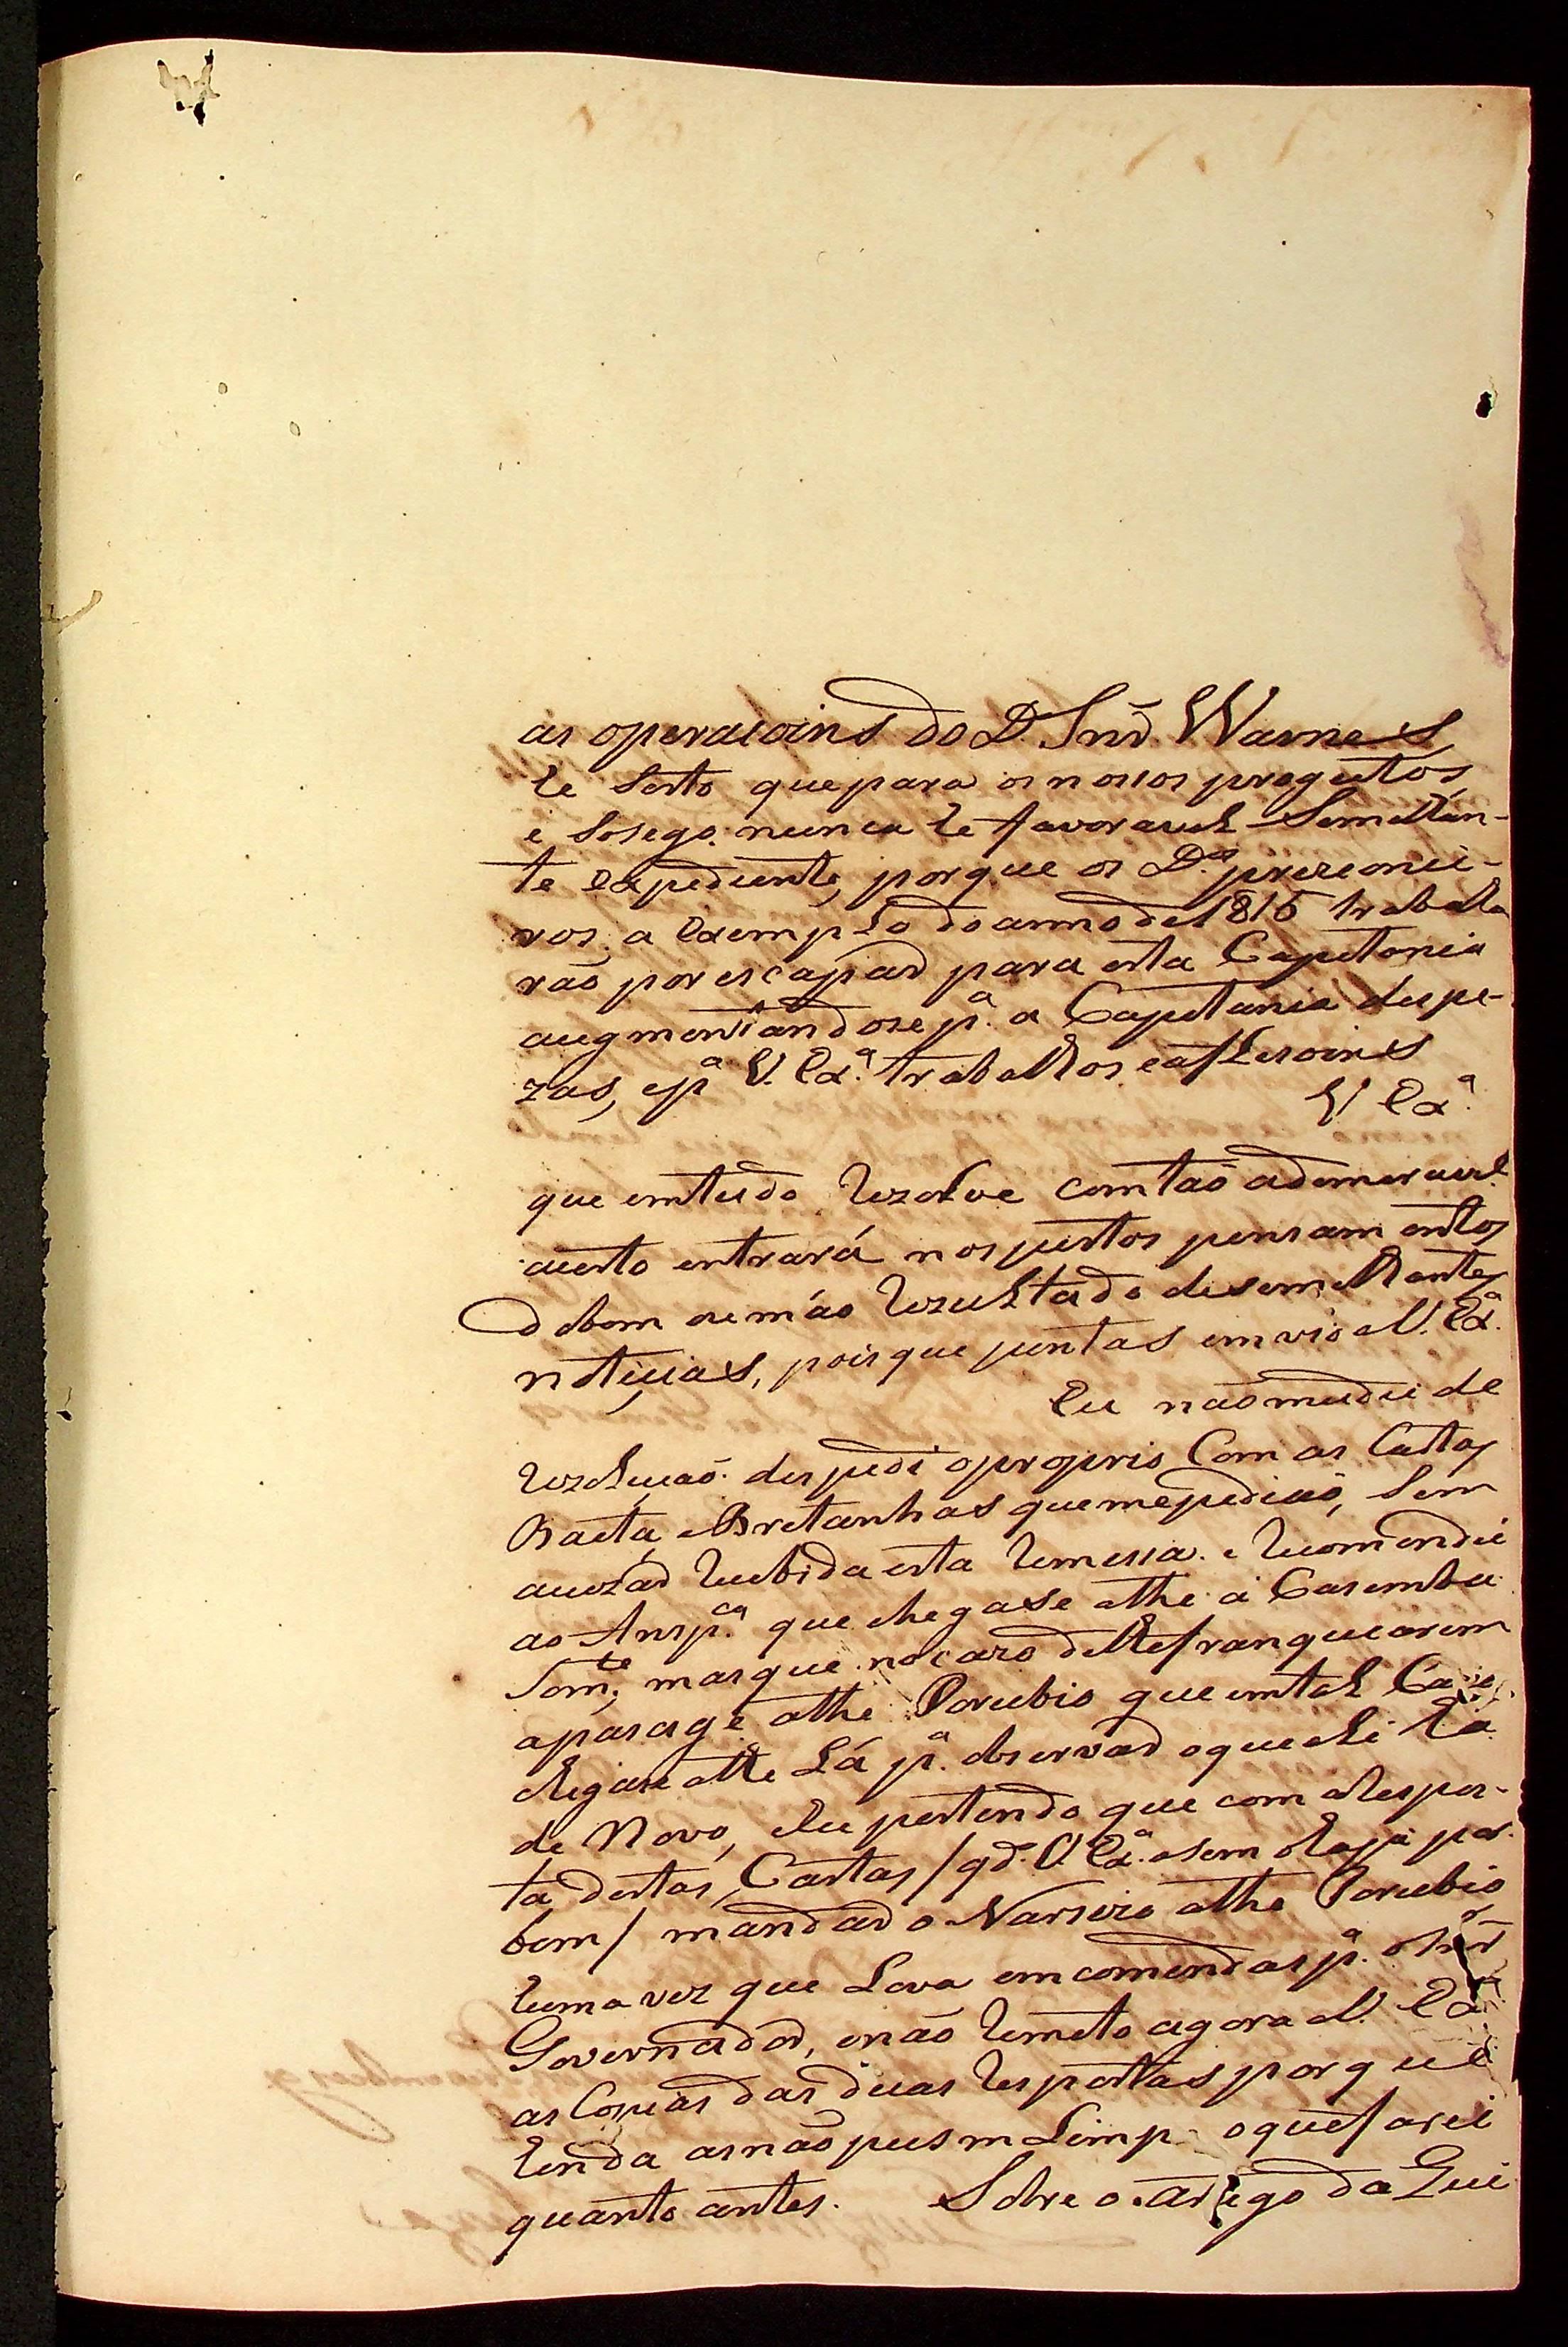 as operacoins do D. Snr. Warnes
he serto que para os nosos progectos
e sosego nunca he favoravel Semelhan-
te expediente, porque os D.os prizionei-
ros, a exemplo do anno de 1815 trabalha
rão por escapar para esta Capitania
augmentandose p.a a Capitania despe-
zas, e p.a V. Ex.a trabalhos e aflisoins
V Ex.a
que em tudo Rezolve com tão ademeravel
acerto entrará nos justos pensamentos
do bom ou máo Rezultado de semelhantes
noticias, pois que juntas em vio a V. Ex.a
Eu não mudei de
Rezolução. despedi o proprio Com as Cartas
Baeta, e Bretanhas que me pedirão, Sem
acuzar Recebida esta Remessa. e Recomendei
ao Ansp.ca que chegase athe a Casimba
Som.te, mas que no cazo de lhe franquearem
a pasage athe Porubio que em tal Cazo
chegase athe Lá p.a observar o que ali há
de Novo, e Eu pertendo que com a Respos-
ta destas Cartas / q.do V. Ex.a asem o haja por
bem / mandar o Narcizo athe Porubio
huma vez que Leva em comendas p.a o Snr
Governador, e não Remeto agora a V. Ex.a
as Copias das duas Respostas porque
henda as não pus em Limp o que farei
quanto antes. Sobre o artigo da Gui